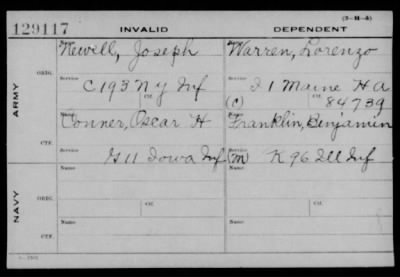 129117 INVALID DEPENDENT
(3-H-5)
ARMY
ORIG.
Name Newell, Joseph
Name Warren, Lorenzo
Service C 193 N Y Inf
Service I 1 Maine H A
Of.
Of.
(C) 84739
CTF.
Name Conner, Oscar H
Name Franklin, Benjamin
Service G 11 Iowa Inf
Service (M) K 96 Ill Inf
NAVY
ORIG.
Name
Name
Service Of.
Service Of.
CTF.
Name
Name
Service
Service